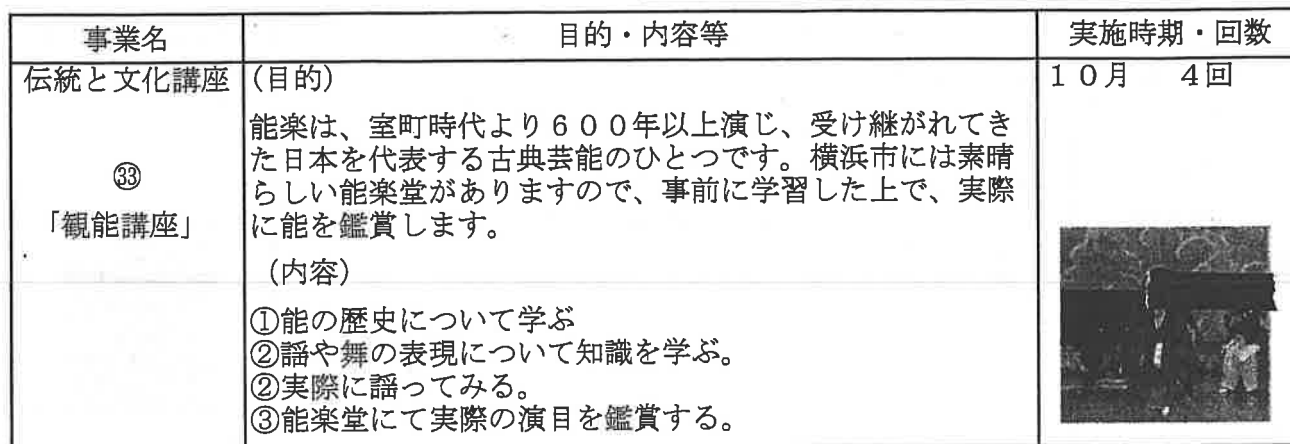 事業名
目的・内容等
実施時期・回数
伝統と文化講座
㉝
「観能講座」
(目的)
能楽は、室町時代より600年以上演じ、受け継がれてき
た日本を代表する古典芸能のひとつです。横浜市には素晴
らしい能楽堂がありますので、事前に学習した上で、実際
に能を鑑賞します。
(内容)
①能の歴史について学ぶ
②謡や舞の表現について知識を学ぶ。
②実際に謡ってみる。
③能楽堂にて実際の演目を鑑賞する。
10月 4回